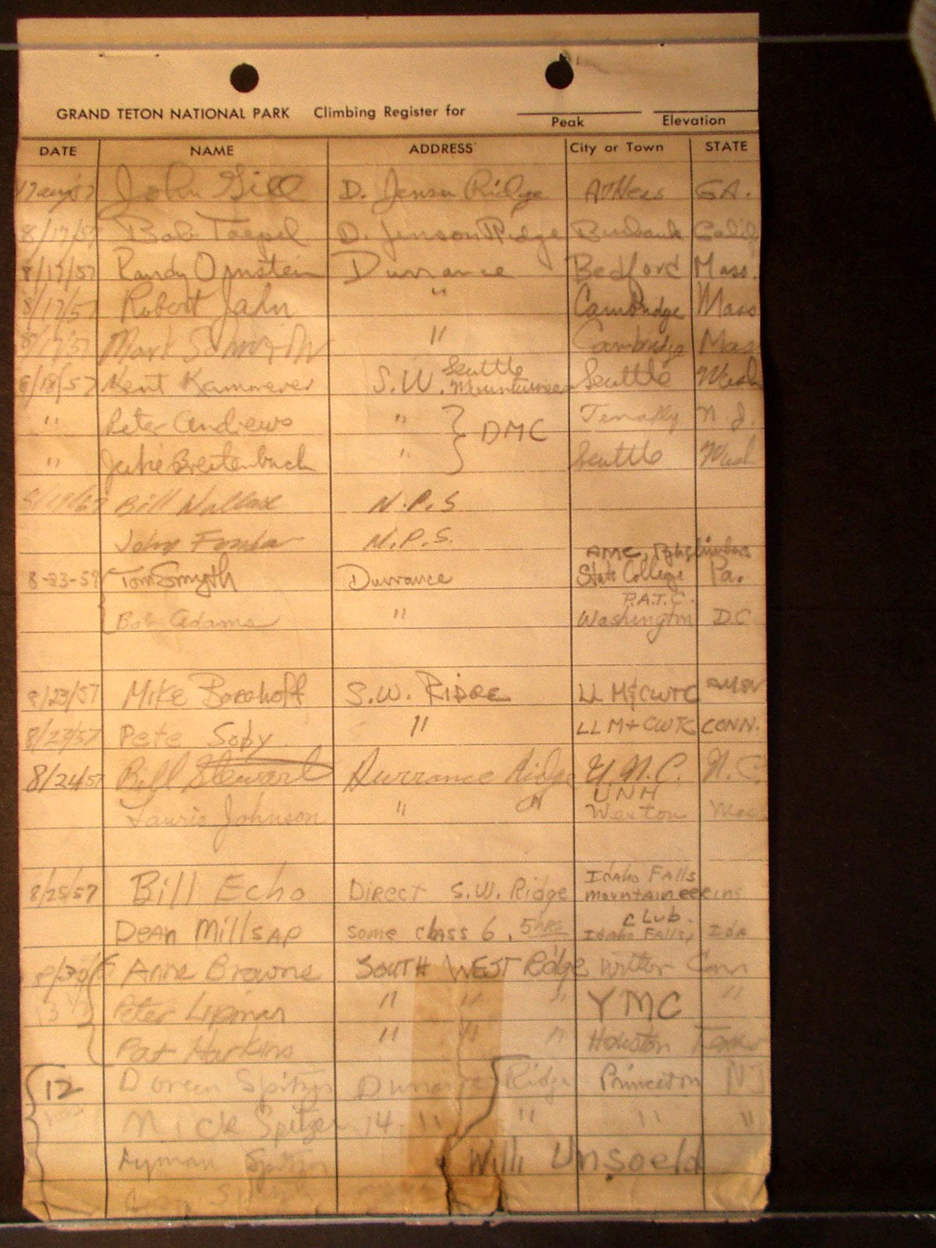 GRAND TETON NATIONAL PARK Climbing Register for
Peak Elevation
DATE NAME ADDRESS City or Town STATE
17 Aug 57 John Gill D. Jensen Ridge Athens GA.
8/17/57 Bob Toepel D. Jenson Ridge Burbank Calif
8/17/57 Randy Ornstein Durrance Bedford Mass.
8/17/57 Robert Jahn " Cambridge Mass
8/17/57 Mark " Cambridge Mass
8/18/57 Kent Kammerer S.W. Seattle Mountaineer Seattle Wash
" Peter Andrews " } DMC Tenafly N.J.
" Julie Breitenbach " Seattle Wash
Bill Wallace N.P.S
John N.P.S.
AMC,
8-23-57 Tom Smyth Durrance State College Pa.
P.A.T.C.
Bob Adams " Washington D.C
8/23/57 Mike Borghoff S.W. RIDGE LL M&CWTC
8/23/57 Pete Soby " LL M+CWTC CONN.
8/24/57 Bill Stewart Durrance Ridge U.N.C. N.C.
UNH
Laurie Johnson " " Weston Mass
Idaho Falls
8/25/57 Bill Echo Direct S.W. Ridge Mountaineering
Club.
Dean Millsap some class 6, 5 hrs Idaho Falls, IDA
8/30/5 Anne Browne SOUTH WEST Ridge Wilton Conn
Peter Lipman " " " YMC "
Pat Harkins " " " Houston Texas
12 Doreen Spitzer Durrance Ridge Princeton NJ
Nick Spitzer 14 " " " "
Lyman Spitzer Willi Unsoeld